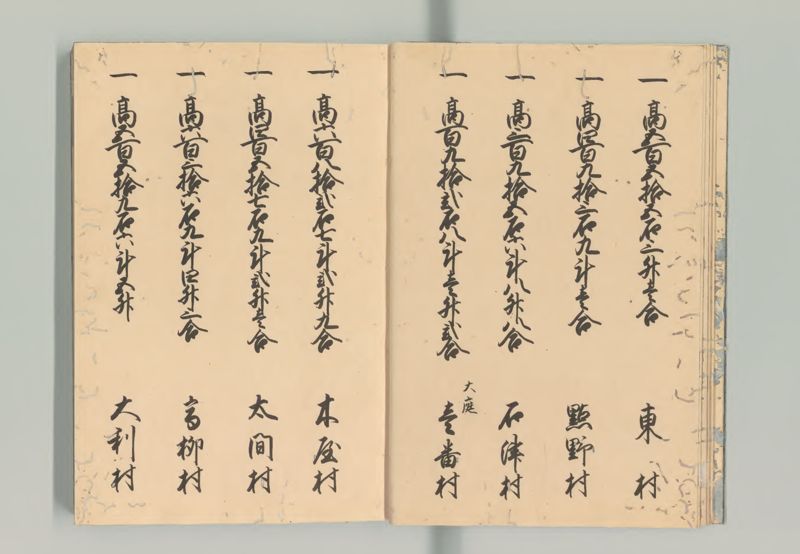 一 高五百五拾五石二升壱合 東村
一 高四百九拾三石九斗壱合 點野村
一 高三百九拾五石六斗八升八合 石津村
一 高百九拾弐石八斗壱升弐合 大庭壱番村
一 高六百八拾弐石七斗弐升九合 木屋村
一 高四百五拾七石九斗弐升壱合 太間村
一 高六百三拾六石九斗四升二合 高柳村
一 高五百五拾九石六斗五升 大利村